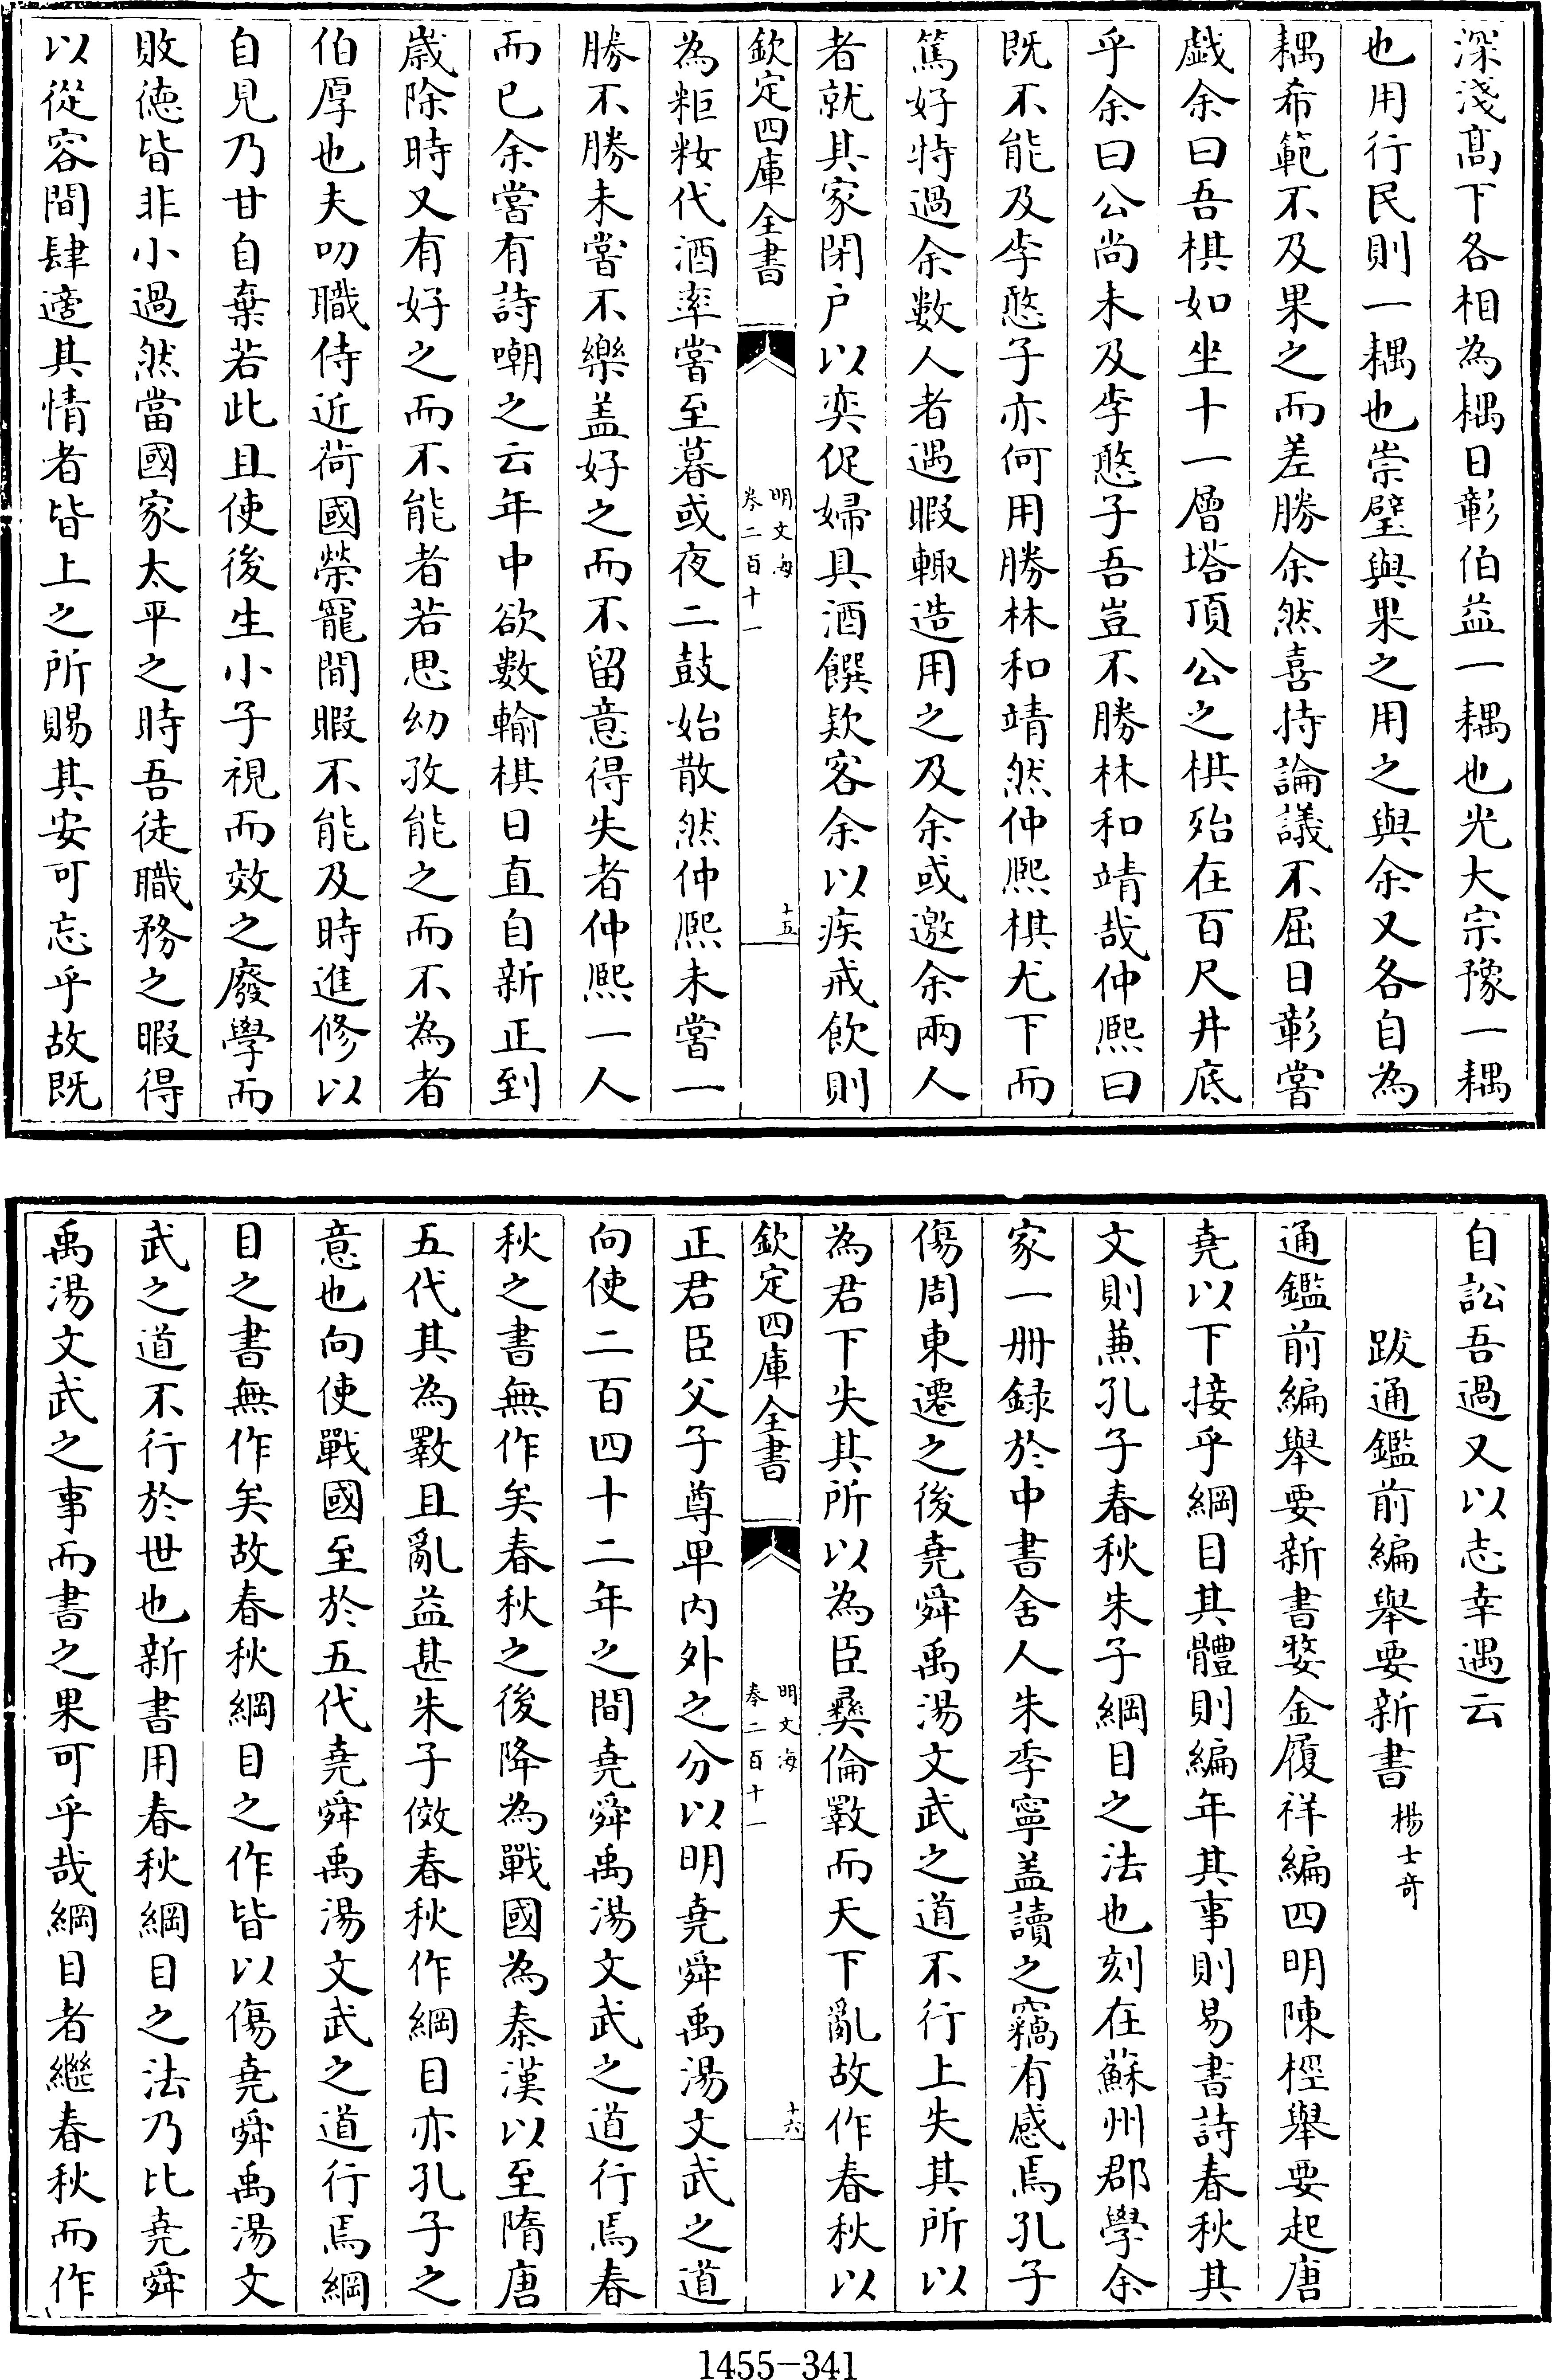 深淺髙下各相為耦日彰伯益一耦也光大宗豫一耦
也用行民則一耦也崇璧與果之用之與余又各自為
耦希範不及果之而差勝余然喜持論議不屈日彰嘗
戯余曰吾棋如坐十一層塔頂公之棋殆在百尺井底
乎余曰公尚未及李憨子吾豈不勝林和靖哉仲熙曰
既不能及李憨子亦何用勝林和靖然仲熙棋尤下而
篤好特過余數人者遇暇輙造用之及余或邀余兩人
者就其家閉户以奕促婦具酒饌欵客余以疾戒飲則
欽定四庫全書
明文海
卷二百十一
十五
為粔籹代酒率嘗至暮或夜二鼓始散然仲熙未嘗一
勝不勝未嘗不樂盖好之而不留意得失者仲熙一人
而已余嘗有詩嘲之云年中欲數輸棋日直自新正到
歳除時又有好之而不能者若思幼孜能之而不為者
伯厚也夫叨職侍近荷國榮寵間暇不能及時進修以
自見乃甘自棄若此且使後生小子視而效之廢學而
敗徳皆非小過然當國家太平之時吾徒職務之暇得
以從容間肆適其情者皆上之所賜其安可忘乎故既
自訟吾過又以志幸遇云
跋通鑑前編舉要新書 楊士竒
通鑑前編舉要新書婺金履祥編四明陳桱舉要起唐
堯以下接乎綱目其體則編年其事則易書詩春秋其
文則兼孔子春秋朱子綱目之法也刻在蘇州郡學余
家一册録於中書舍人朱季寧盖讀之竊有感焉孔子
傷周東遷之後堯舜禹湯文武之道不行上失其所以
為君下失其所以為臣彛倫斁而天下亂故作春秋以
欽定四庫全書
明文海
卷二百十一
十六
正君臣父子尊卑内外之分以明堯舜禹湯文武之道
向使二百四十二年之間堯舜禹湯文武之道行焉春
秋之書無作矣春秋之後降為戰國為秦漢以至隋唐
五代其為斁且亂益甚朱子倣春秋作綱目亦孔子之
意也向使戰國至於五代堯舜禹湯文武之道行焉綱
目之書無作矣故春秋綱目之作皆以傷堯舜禹湯文
武之道不行於世也新書用春秋綱目之法乃比堯舜
禹湯文武之事而書之果可乎哉綱目者繼春秋而作
1455-341